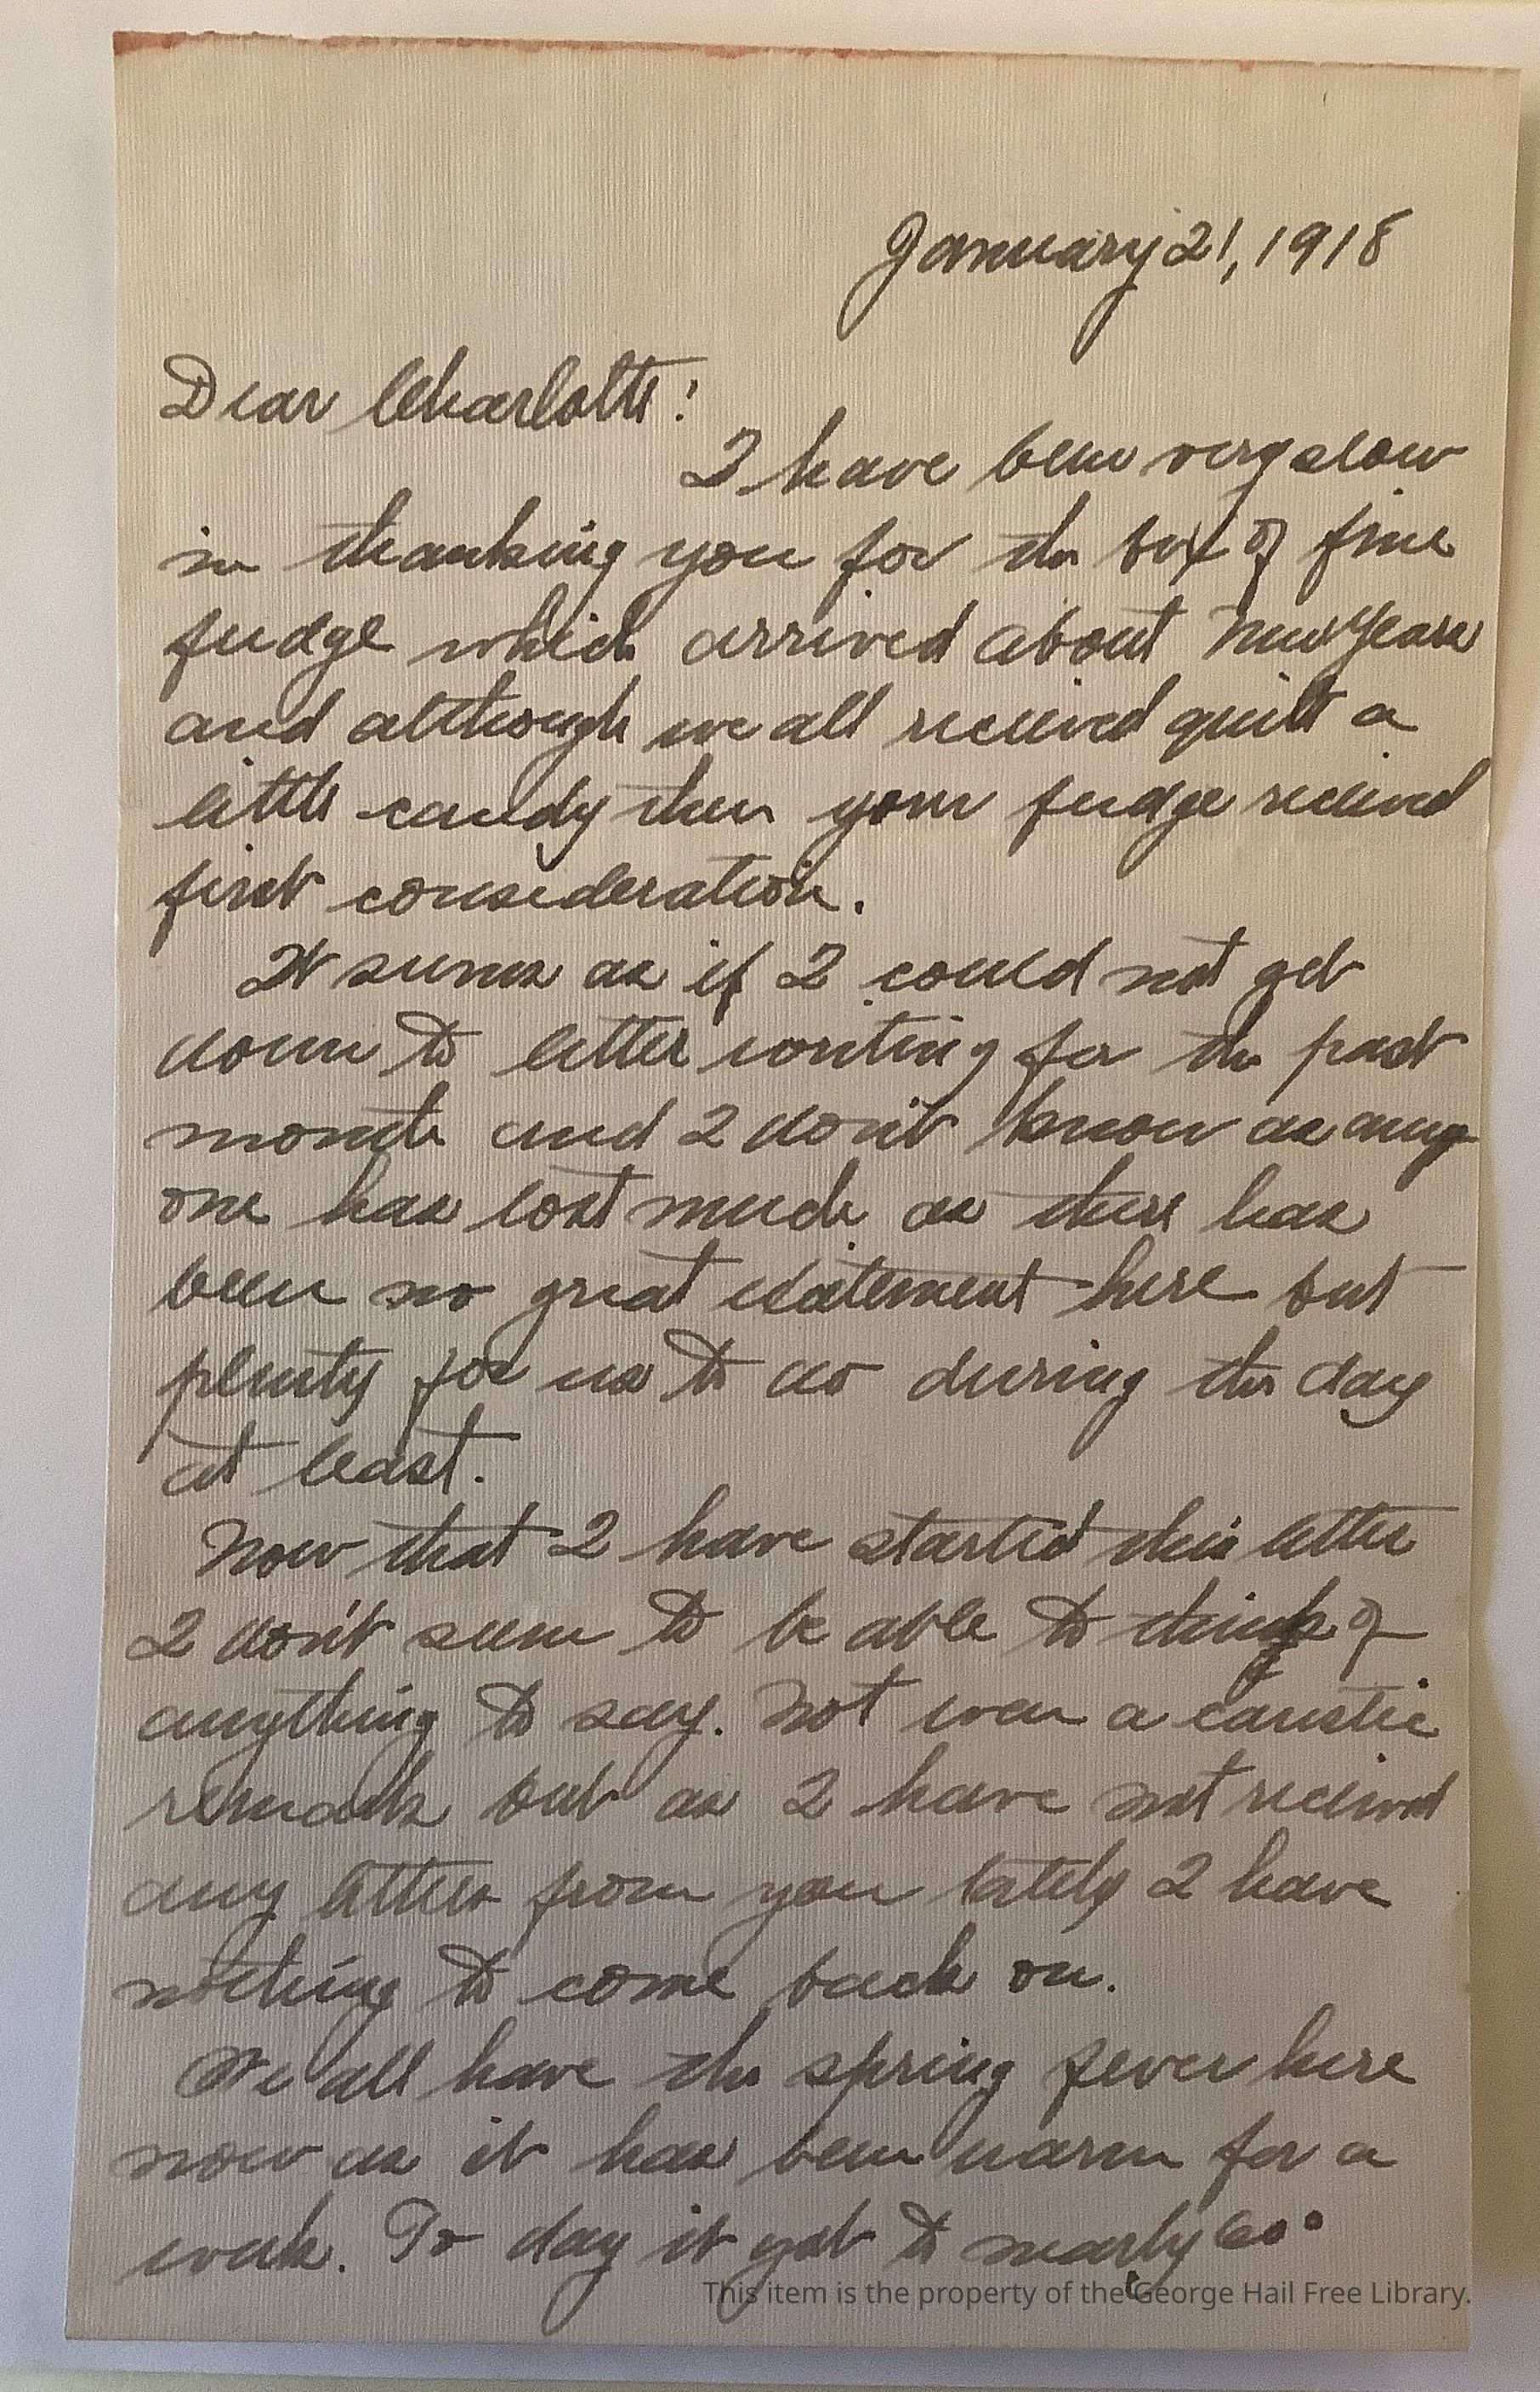 January 21, 1918
Dear Charlotte:
I have been very slow
in thanking you for the box of fine
fudge which arrived about New Years
and although we all received quite a
little candy then your fudge received
first consideration.
It seems as if I could not get
down to letter writing for the past
month and I don't know as any
one has lost much as there has
been no great excitement here but
plenty for us to do during the day
at least.
Now that I have started this letter
I don't seem to be able to think of
anything to say. Not even a caustic
remark but as I have not received
any letters from you lately I have
nothing to come back on.
We all have the spring fever here
now as it has been warm for a
week. To day it got to nearly 60°
This item is the property of the George Hail Free Library.